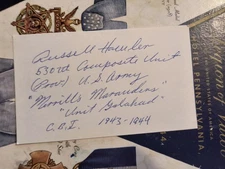 Russell Hamler
5307th Composite Unit
(Prov) U.S. Army
"Merrill's Marauders"
"Unit Galahad"
C.B.I. 1943-1944
PENNSYLVANIA